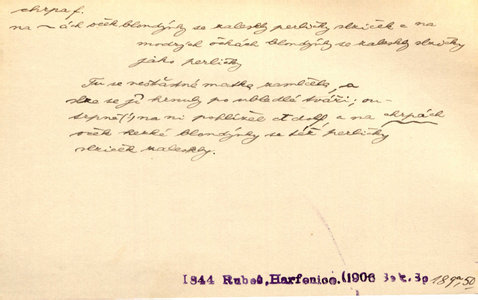 chrpa f.
na ~ ách oček blondýnky se zaleskly perličky slziček = na
modrých očkách blondýnky se zaleskly slzičky
jako perličky
Tu se nešťastná matka zamlčela, a
slze se jí hrnuly po vbledlé tváři; ou-
trpně (!) na ni pohlížel Adolf, a na chrpách
oček hezké blondýnky se též perličky
slziček zaleskly.
1844 Rubeš, Harfenice. (1906